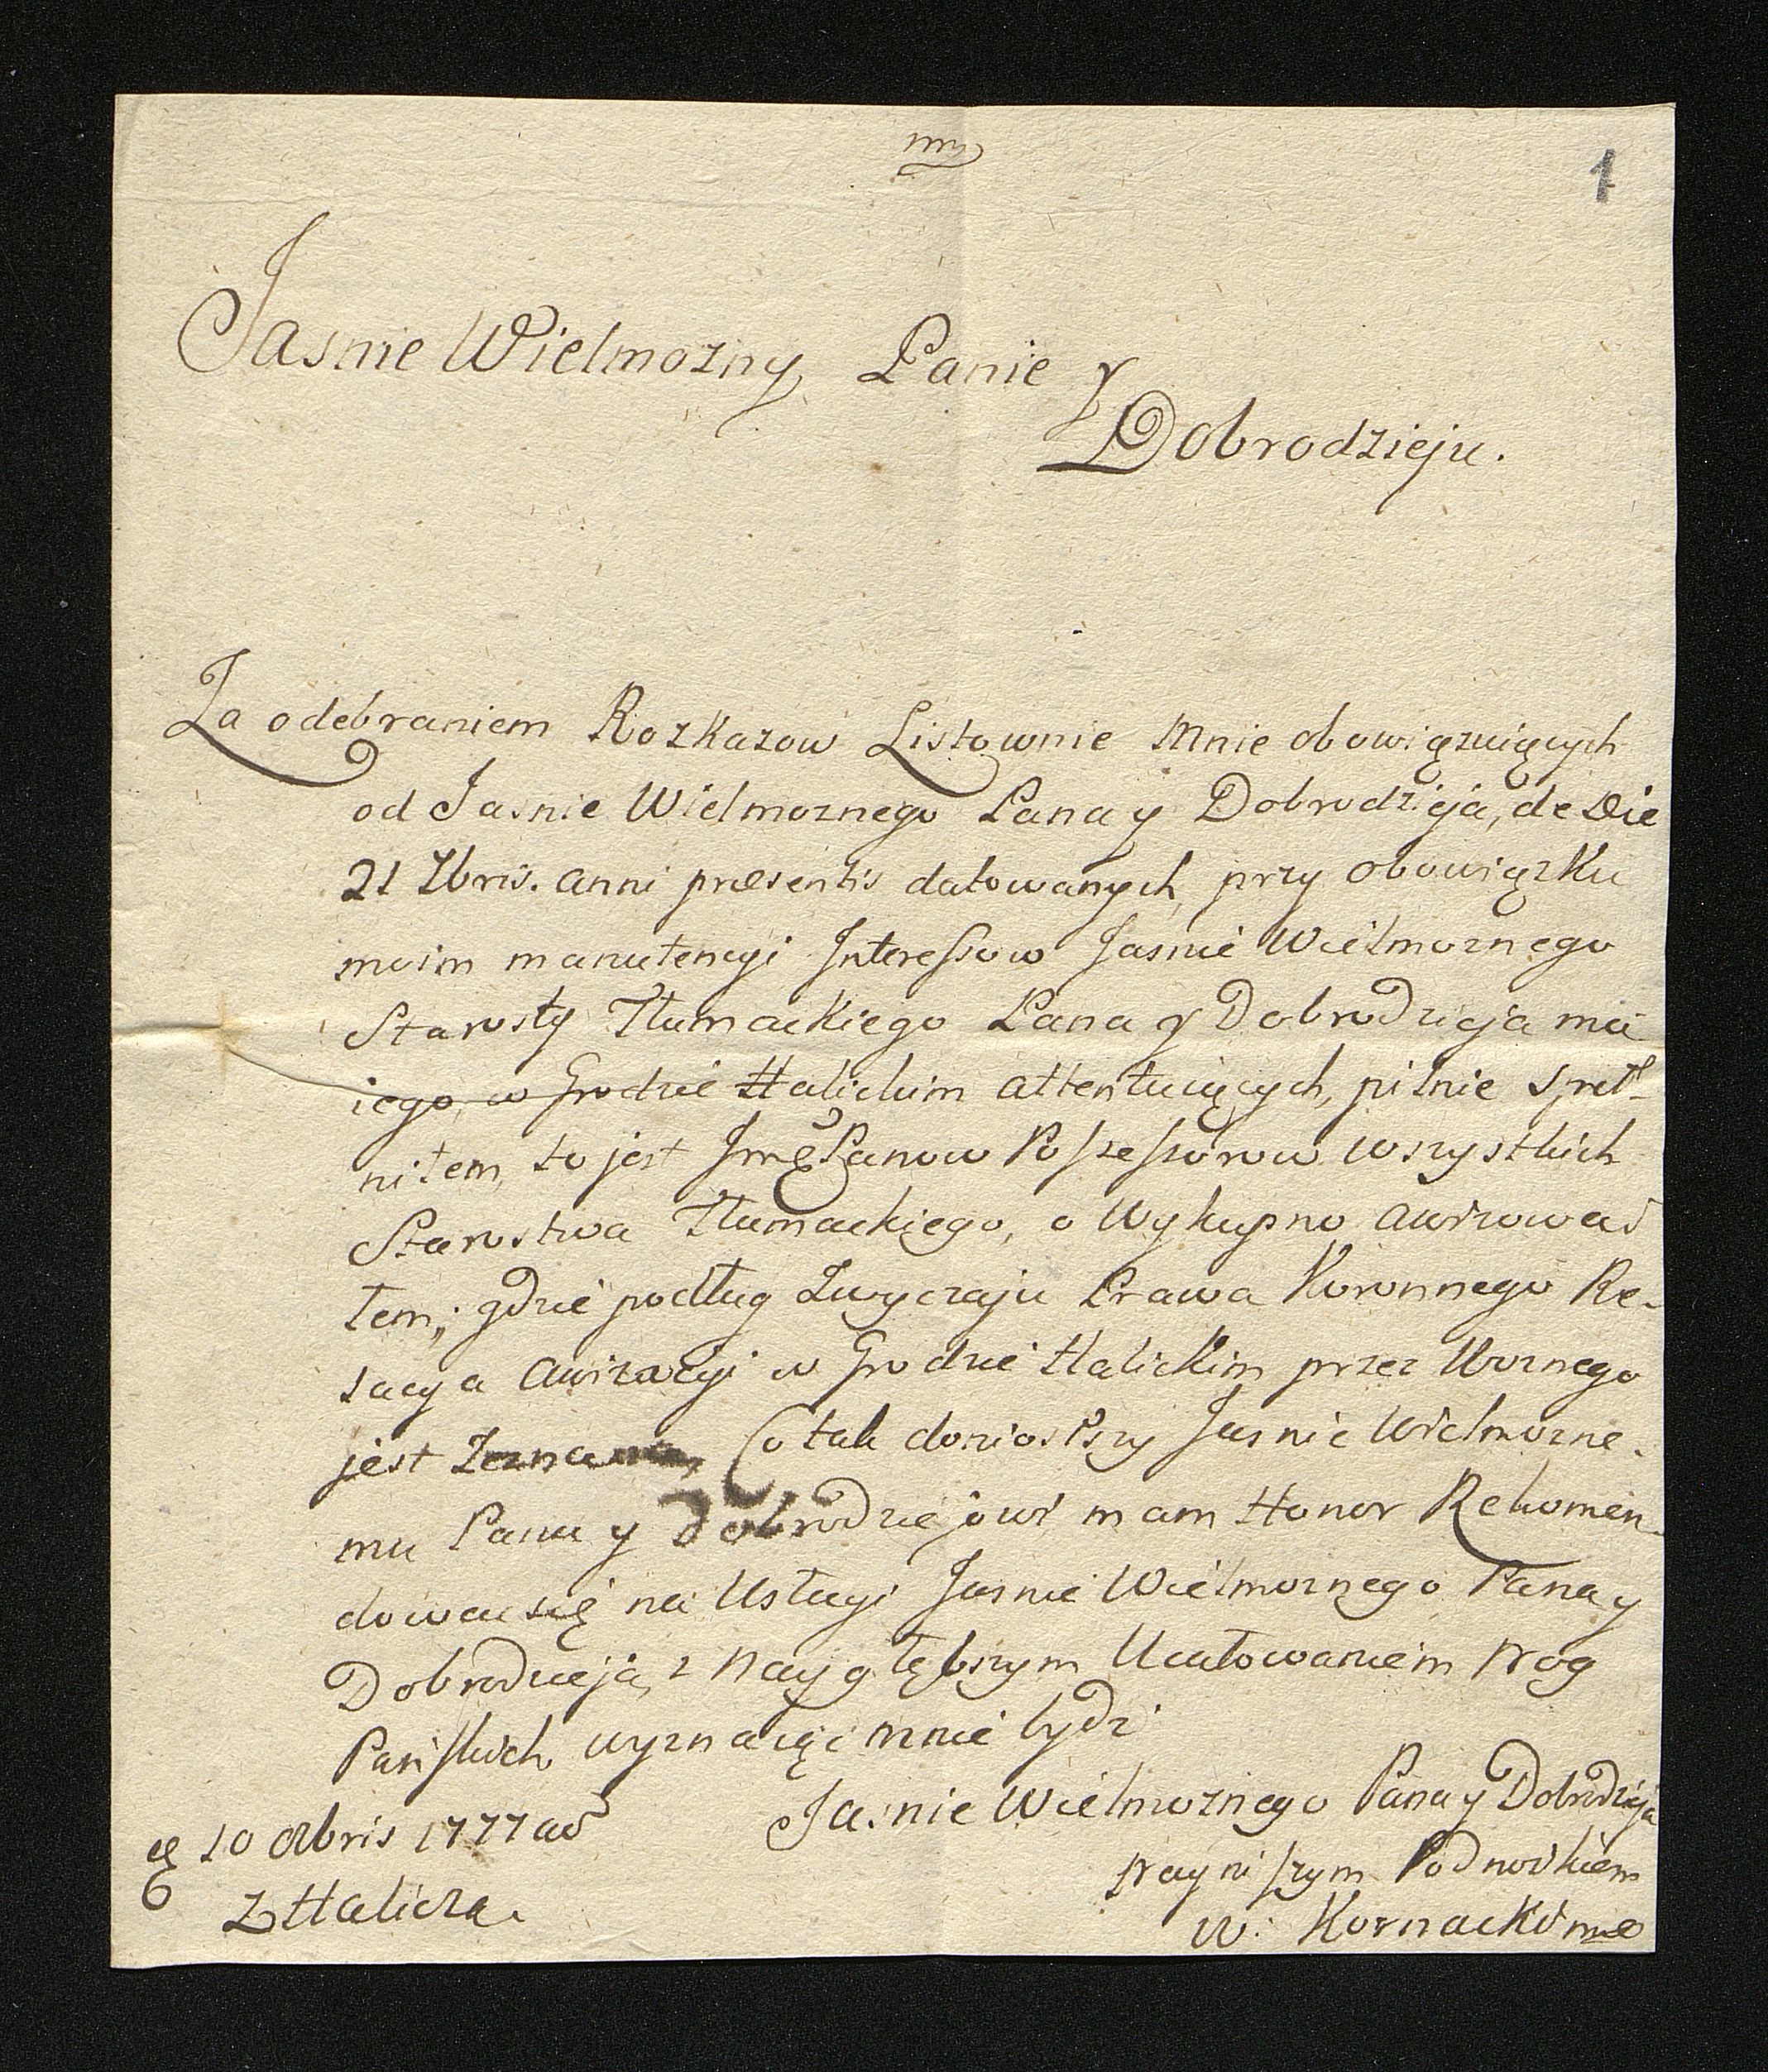 1
Jasnie Wielmozny Panie y
Dobrodzieju.
Za odebraniem Rozkazow Listownie mnie obowięzuięcych
od Jasnie Wielmoznego Pana y Dobrodzieja, de Die
21 7bris. anni præsentis datowanych, przy obowięzku
moim manutencyi Interessow Jasnie Wielmoznego
Starosty Tłumackiego Pana y Dobrodzieja mo
iego, w Grodzie Halickim attentuięcych, pilnie speł-
niłem, to jest Panow Possessorow wszystkich
Starostwa Tłumackiego, o Wykupno awizowa
łem; gdzie podług Zwyczaju Prawa Koronnego Re-
lacya awizacyi w Grodzie Halickim przez Woznego
jest Zeznana, Co tak doniosłszy Jasnie Wielmozne-
mu Panu y Dobrodziejowi mam Honor Rekomen-
dowac się na Usługi Jasnie Wielmoznego Pana y
Dobrodzieja, z naygłębszym Ucałowaniem nog
Pańskich wyznaięc mnie bydz
Jasnie Wielmoznego Pana y Dobrodzieja
10 Xbris 1777
nayniszym Podnożkiem
z Halicza.
W: Kornacki mp